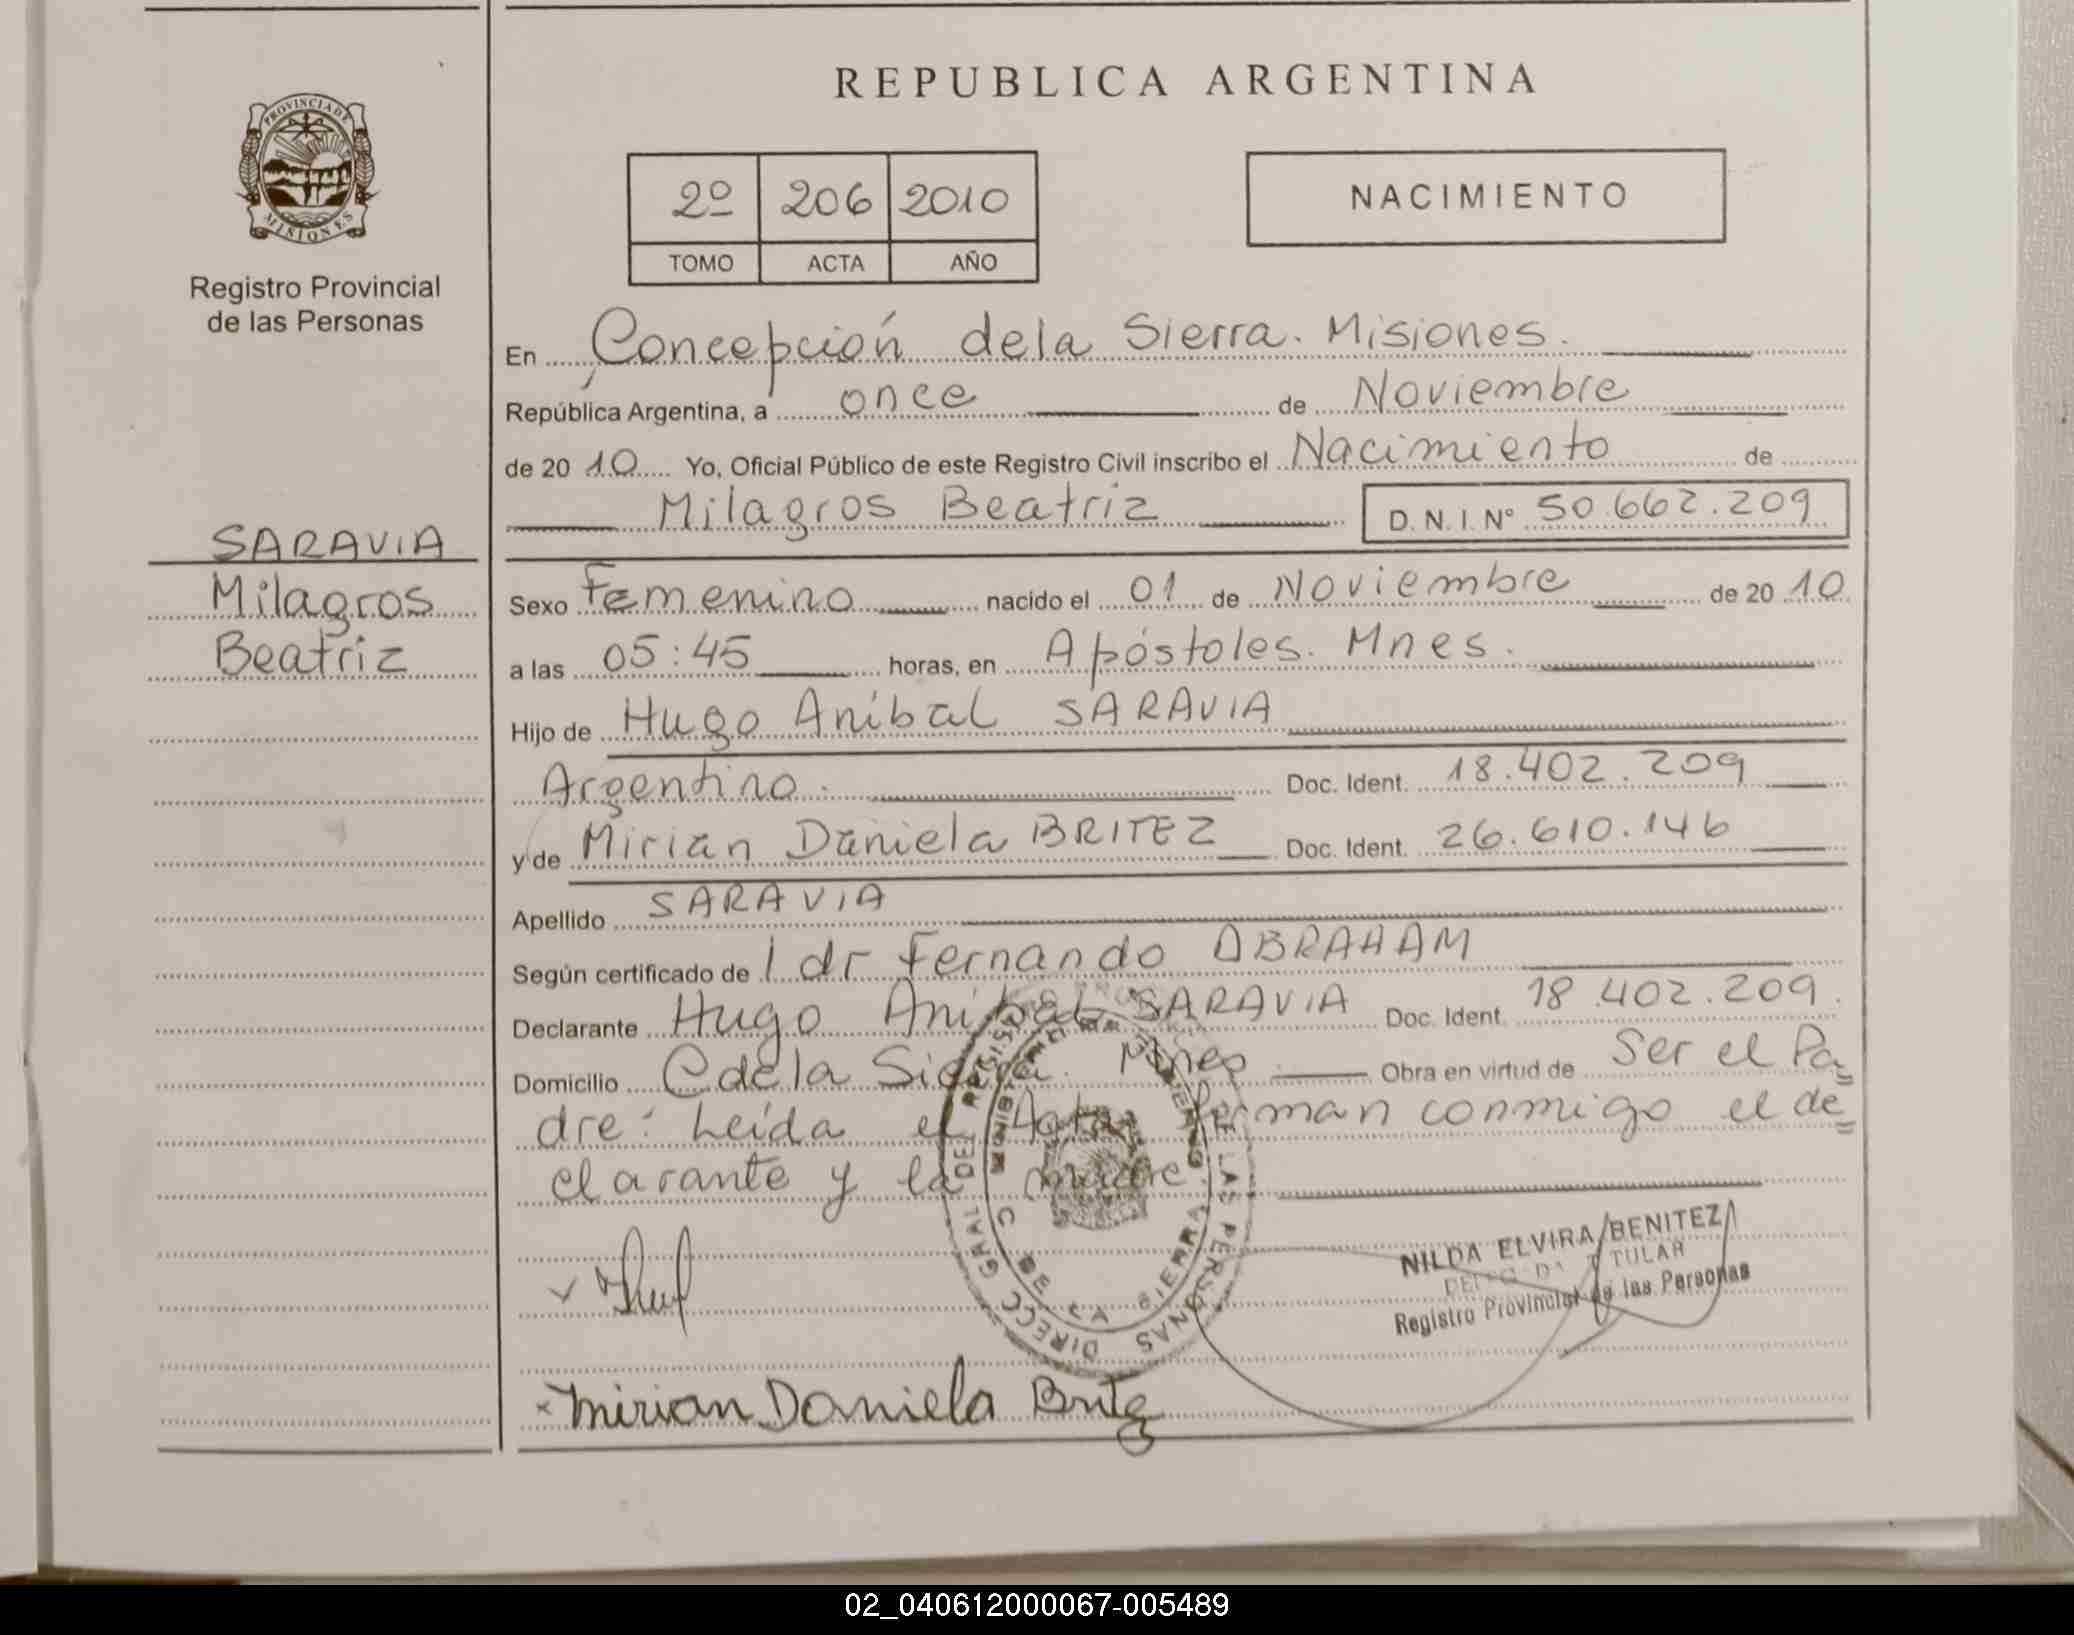 REPUBLICA ARGENTINA
PROVINCIA DE
MISIONES
Registro Provincial
de las Personas
2º 206 2010
TOMO ACTA AÑO
NACIMIENTO
En Concepción dela Sierra. Misiones.
República Argentina, a once de Noviembre
de 2010 Yo, Oficial Público de este Registro Civil inscribo el Nacimiento de
Milagros Beatriz D.N.I. Nº 50.662.209
SARAVIA
Milagros
Beatriz
Sexo Femenino nacido el 01 de Noviembre de 2010
a las 05:45 horas, en Apóstoles. Mnes.
Hijo de Hugo Aníbal SARAVIA
Argentino. Doc. Ident. 18.402.209
y de Mirian Daniela BRITEZ Doc. Ident. 26.610.146
Apellido SARAVIA
Según certificado de l dr Fernando ABRAHAM
Declarante Hugo Aníbal SARAVIA Doc. Ident. 18.402.209.
Domicilio C dela Sierra. Mnes Obra en virtud de Ser el Pa=
dre: Leída el Acta firman conmigo el de=
clarante y la madre.
DIRECC GRAL DEL REGIST LAS PERSONAS
DE LA SIERRA
NILDA ELVIRA BENITEZ
TITULAR
Registro Provincial de las Personas
x Mirian Daniela Britez
02_040612000067-005489